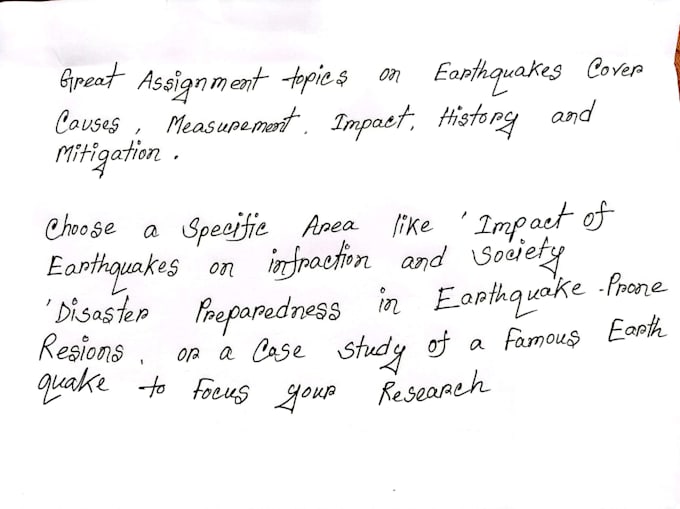 Great Assignment topics on Earthquakes Cover
Causes, Measurement. Impact. History and
Mitigation.
Choose a Specific Area like 'Impact of
Earthquakes on infraction and Society
'Disaster Preparedness in Earthquake-Prone
Resions. or a Case study of a Famous Earth
quake to Focus your Research